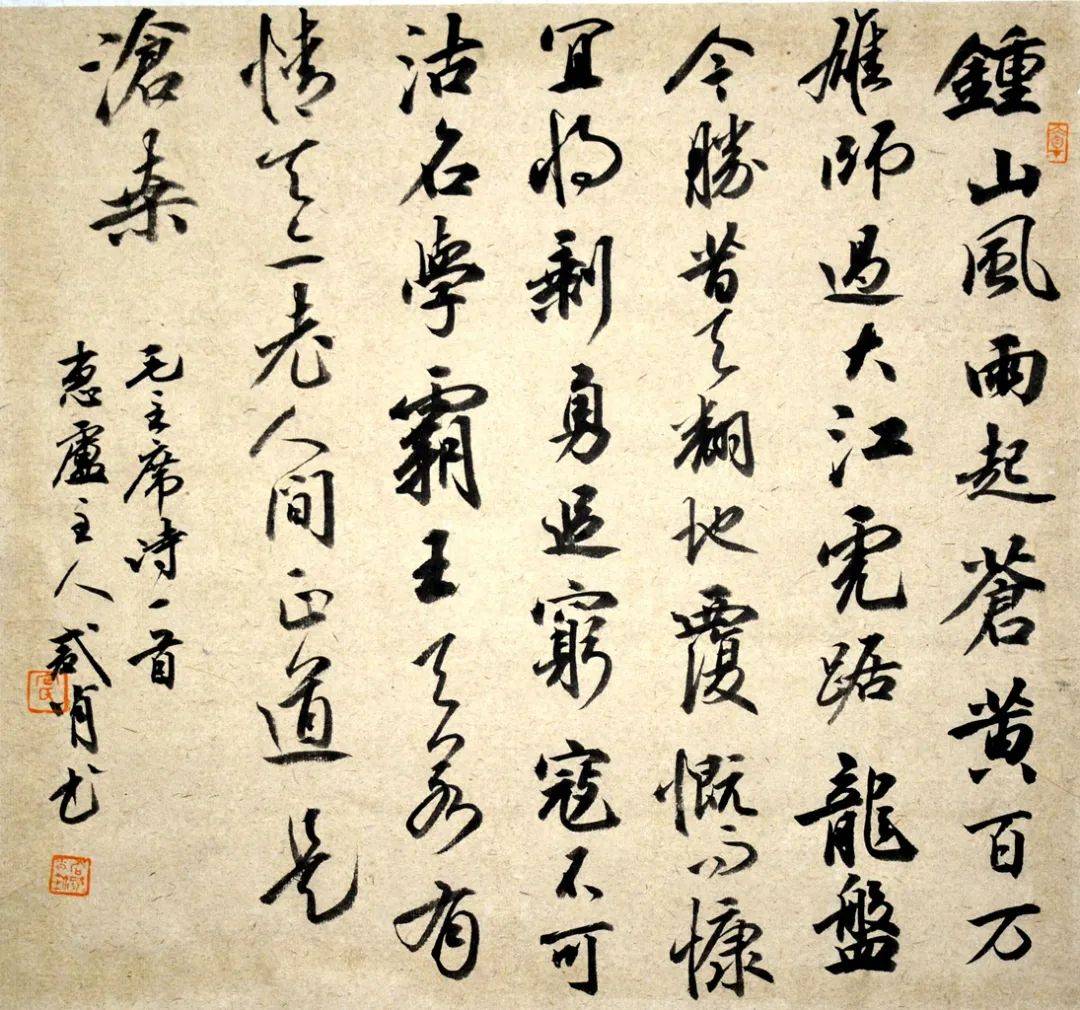 鍾山風雨起蒼黄百万
雄師過大江虎踞龍盤
今勝昔天翻地覆慨而慷
宜将剩勇追窮寇不可
沽名學霸王天若有
情天亦老人間正道是
滄桑
毛主席诗一首
惠盧主人书